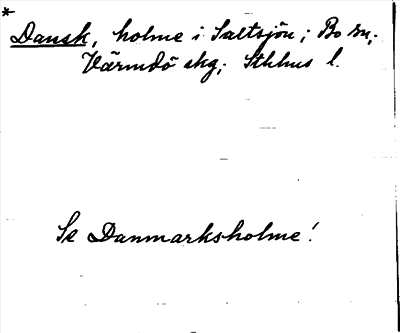 *
Dansk, holme i Saltsjön; Bo sn;
Värmdö skg; Sthlms l.
Se Danmarksholme!